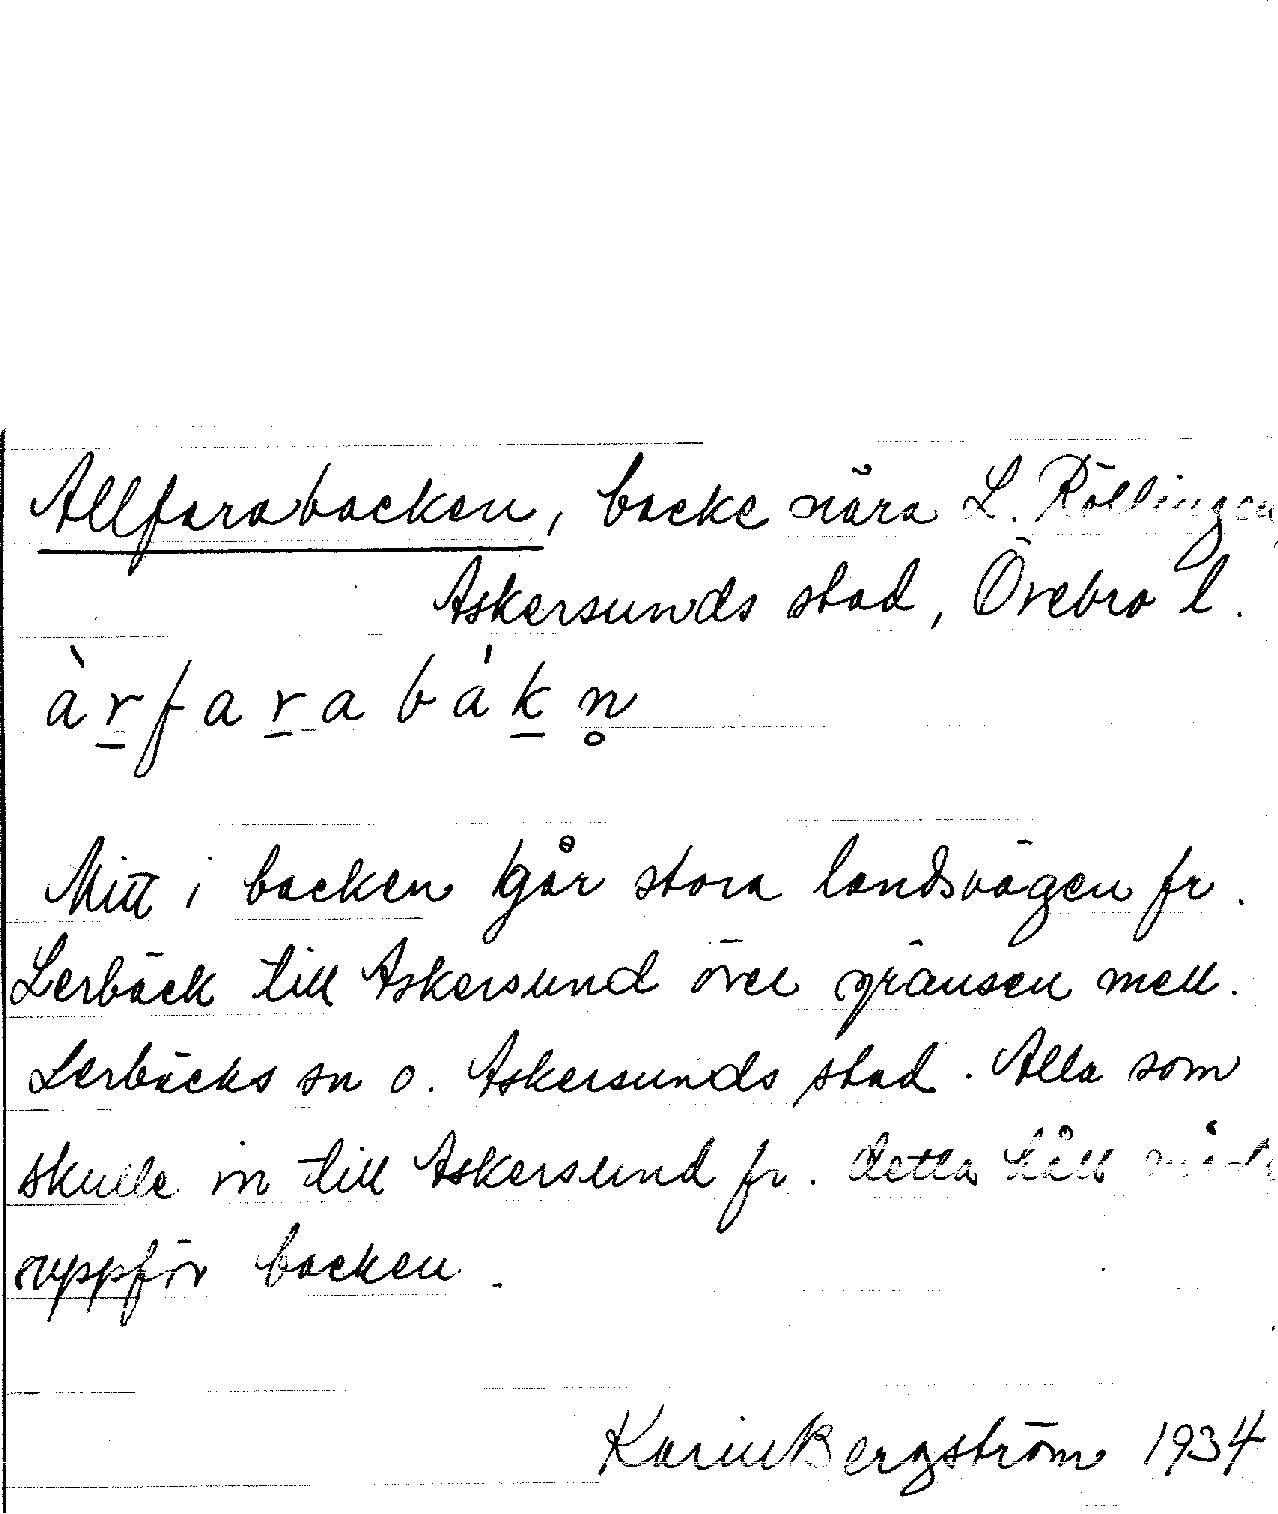 Allfarabacken, backe nära L. Röllingen,
Askersunds stad, Örebro l.
àr̲far̲abák̲n̥
Mitt i backen går stora landsvägen fr.
Lerbäck till Askersund över gränsen mell.
Lerbäcks sn o. Askersunds stad. Alla som
skulle in till Askersund fr. detta håll
uppför backen.
Karin Bergström 1934